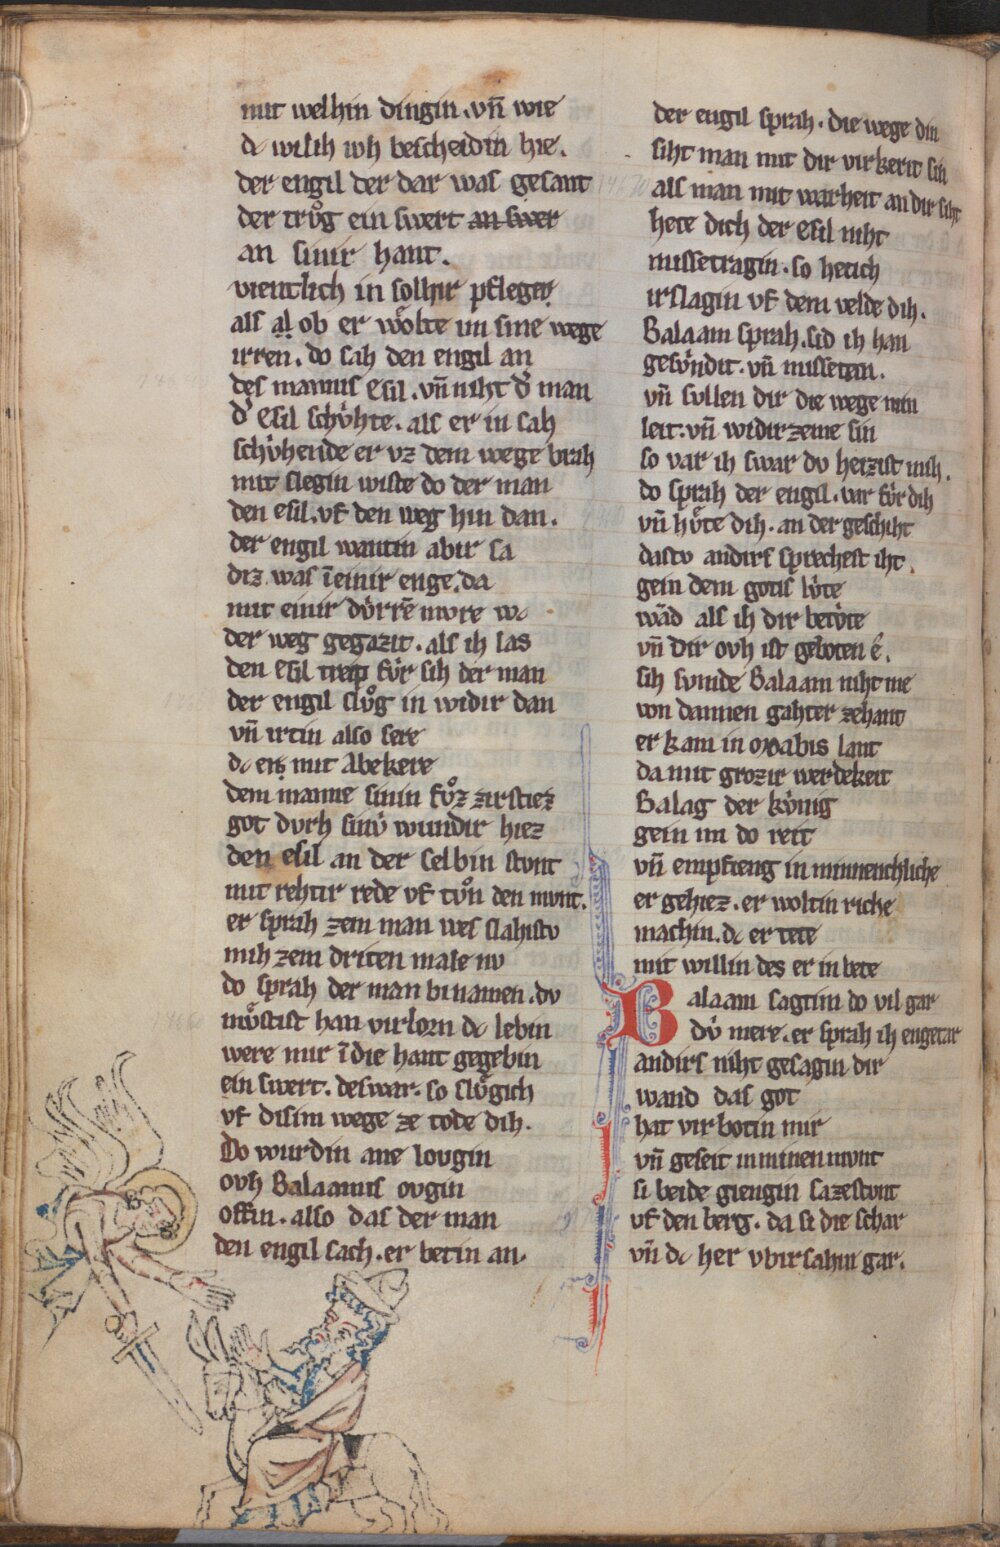 mit welhin dingin. vn̄ wie
dc wil ih ivh bescheidin hie.
der engil der dar was gesant
der trůg ein swert an swer
an sinir hant.
vientlich in solhir pflegen
als al ob er wölte im sine wege
irren. do sah den engil an
des mannis esil. vn̄ niht d' man
d' esil schůhte. als er in sah
schůhende er vz dem wege brah
mit slegin wiste do der man
den esil. vf den weg hin dan.
der engil wantin abir sa
diz was īeinir enge. da
mit einir dúrrē mvre wc
der weg gegazit. als ih las
den esil treip fúr sih der man
der engil slůg in widir dan
vn̄ irtin also sere
dc ers mit abekere
dem manne sinin fůz zirstiez
got dvrh sinú wundir hiez
den esil an der selbin stvnt
mit rehtir rede vf tůn den mvnt.
er sprah zem man wes slahistv
mih zem driten male nv
do sprah der man binamen. dv
můstist han virlorn dc lebin
were mir ī die hant gegebin
ein swert. deswar. so slůgich
vf disim wege ze tode dih.
Do wurdin ane lovgin
ovh Balaamis ovgin
offin. also das der man
den engil sach. er betin an.
der engil sprah. die wege din
siht man mit dir virkerit sin
als man mit warheit an dir siht
hete dich der esil niht
missetragin. so hetich
irslagin vf dem velde dih.
Balaam sprah. sid ih han
gesúndit. vn̄ missetan.
vn̄ svllen dir die wege min
leit. vn̄ widirzeme sin
so var ih swar dv heizist mih.
do sprah der engil. var fúr dih
vn̄ hůte dih. an der geschiht
dastv andirs sprechest iht.
gein dem gotis lúte
wād als ih dir betúte
vn̄ dir ovh ist geboten ê.
sih svmde Balaam niht me
von dannen gahter zehant
er kam in moabis lant
da mit grozir werdekeit
Balag der kúnig
gein im do reit
vn̄ empfieng in minnenchliche
er gehiez. er woltin riche
machin. dc er tete
mit willin des er in bete
Balaam sagtim do vil gar
dú mere. er sprah ih engetar
andirs niht gesagin dir
wand das got
hat virbotin mir
vn̄ geseit in minen mvnt
si beide giengin sazestvnt
vf den berg. da si die schar
vn̄ dc her vbirsahin gar.